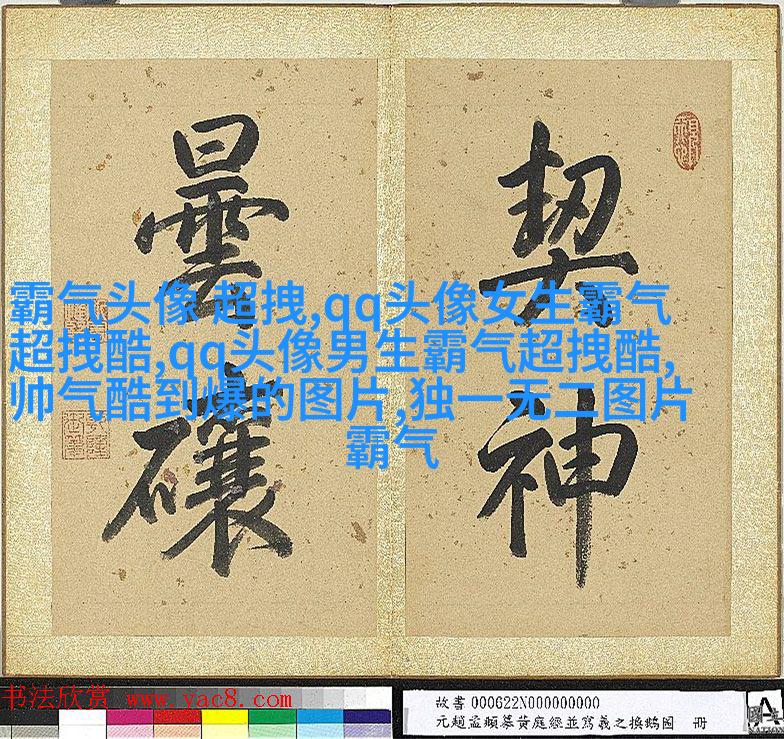 契神
曇礦
霸气头像 超拽,qq头像女生霸气
超拽酷,qq头像男生霸气超拽酷,
帅气酷到爆的图片,独一无二图片
霸气
书法欣赏 www.yac8.com
故書000622N000000000
元趙孟頫募黄庭經並寫羲之換鵝圖 冊